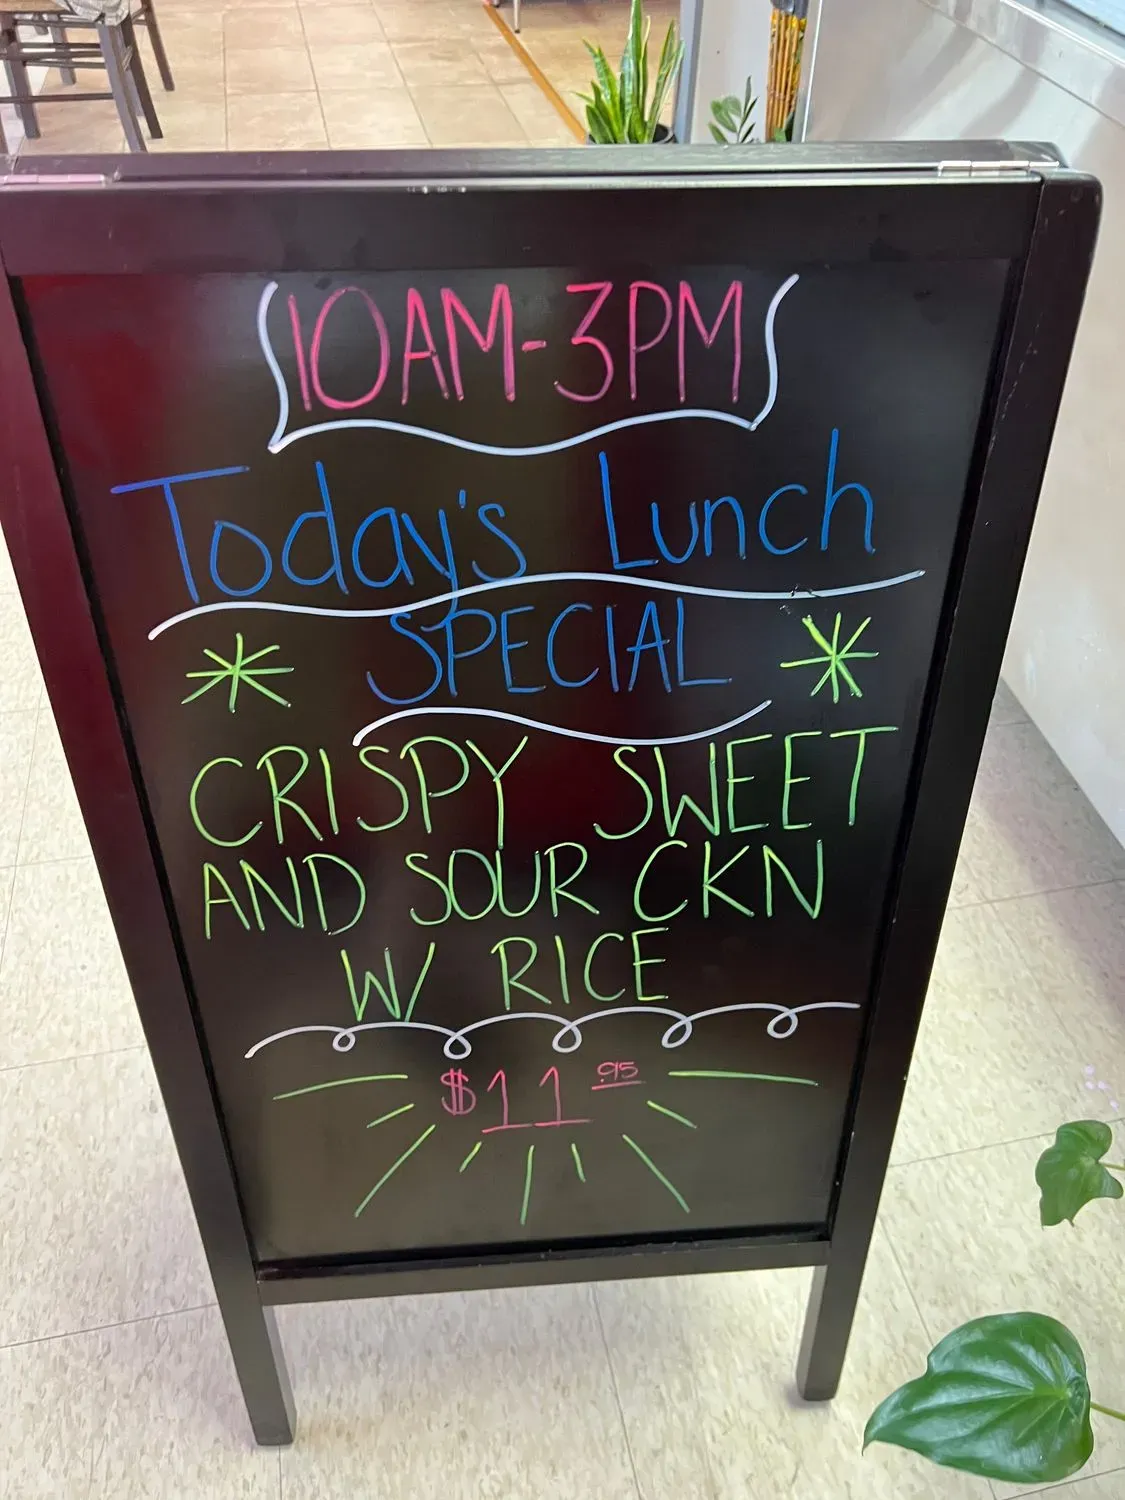 10AM-3PM
Today's Lunch
SPECIAL
CRISPY SWEET
AND SOUR CKN
W/ RICE
$11.95